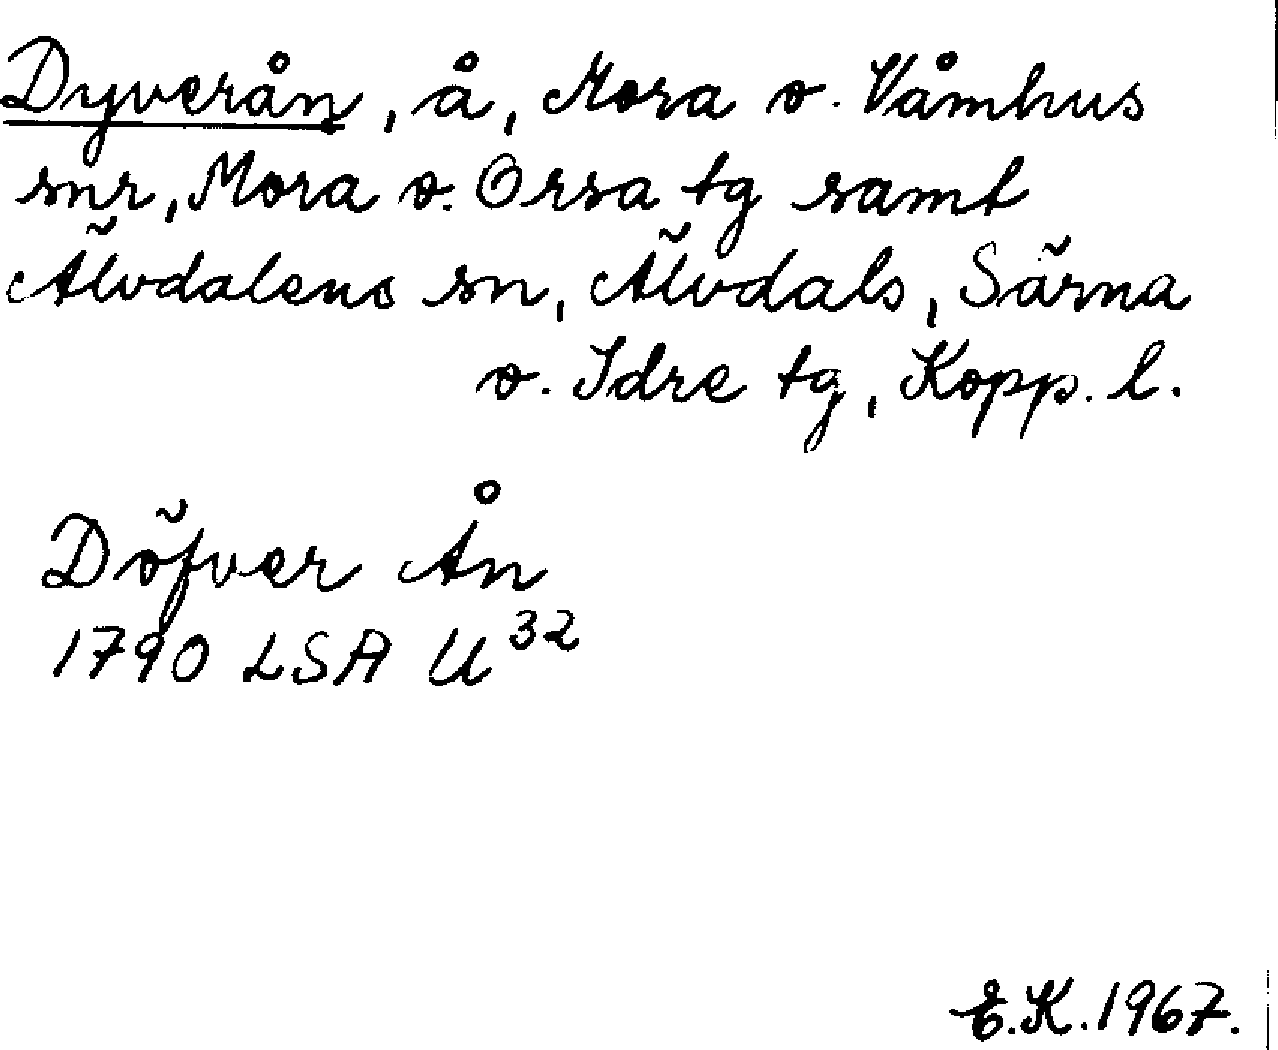 Dyverån, å, Mora o. Våmhus
snr, Mora o. Orsa tg samt
Älvdalens sn, Älvdals, Särna
o. Idre tg, Kopp. l.
Döfver Ån
1790 LSA U32
E.K. 1967.